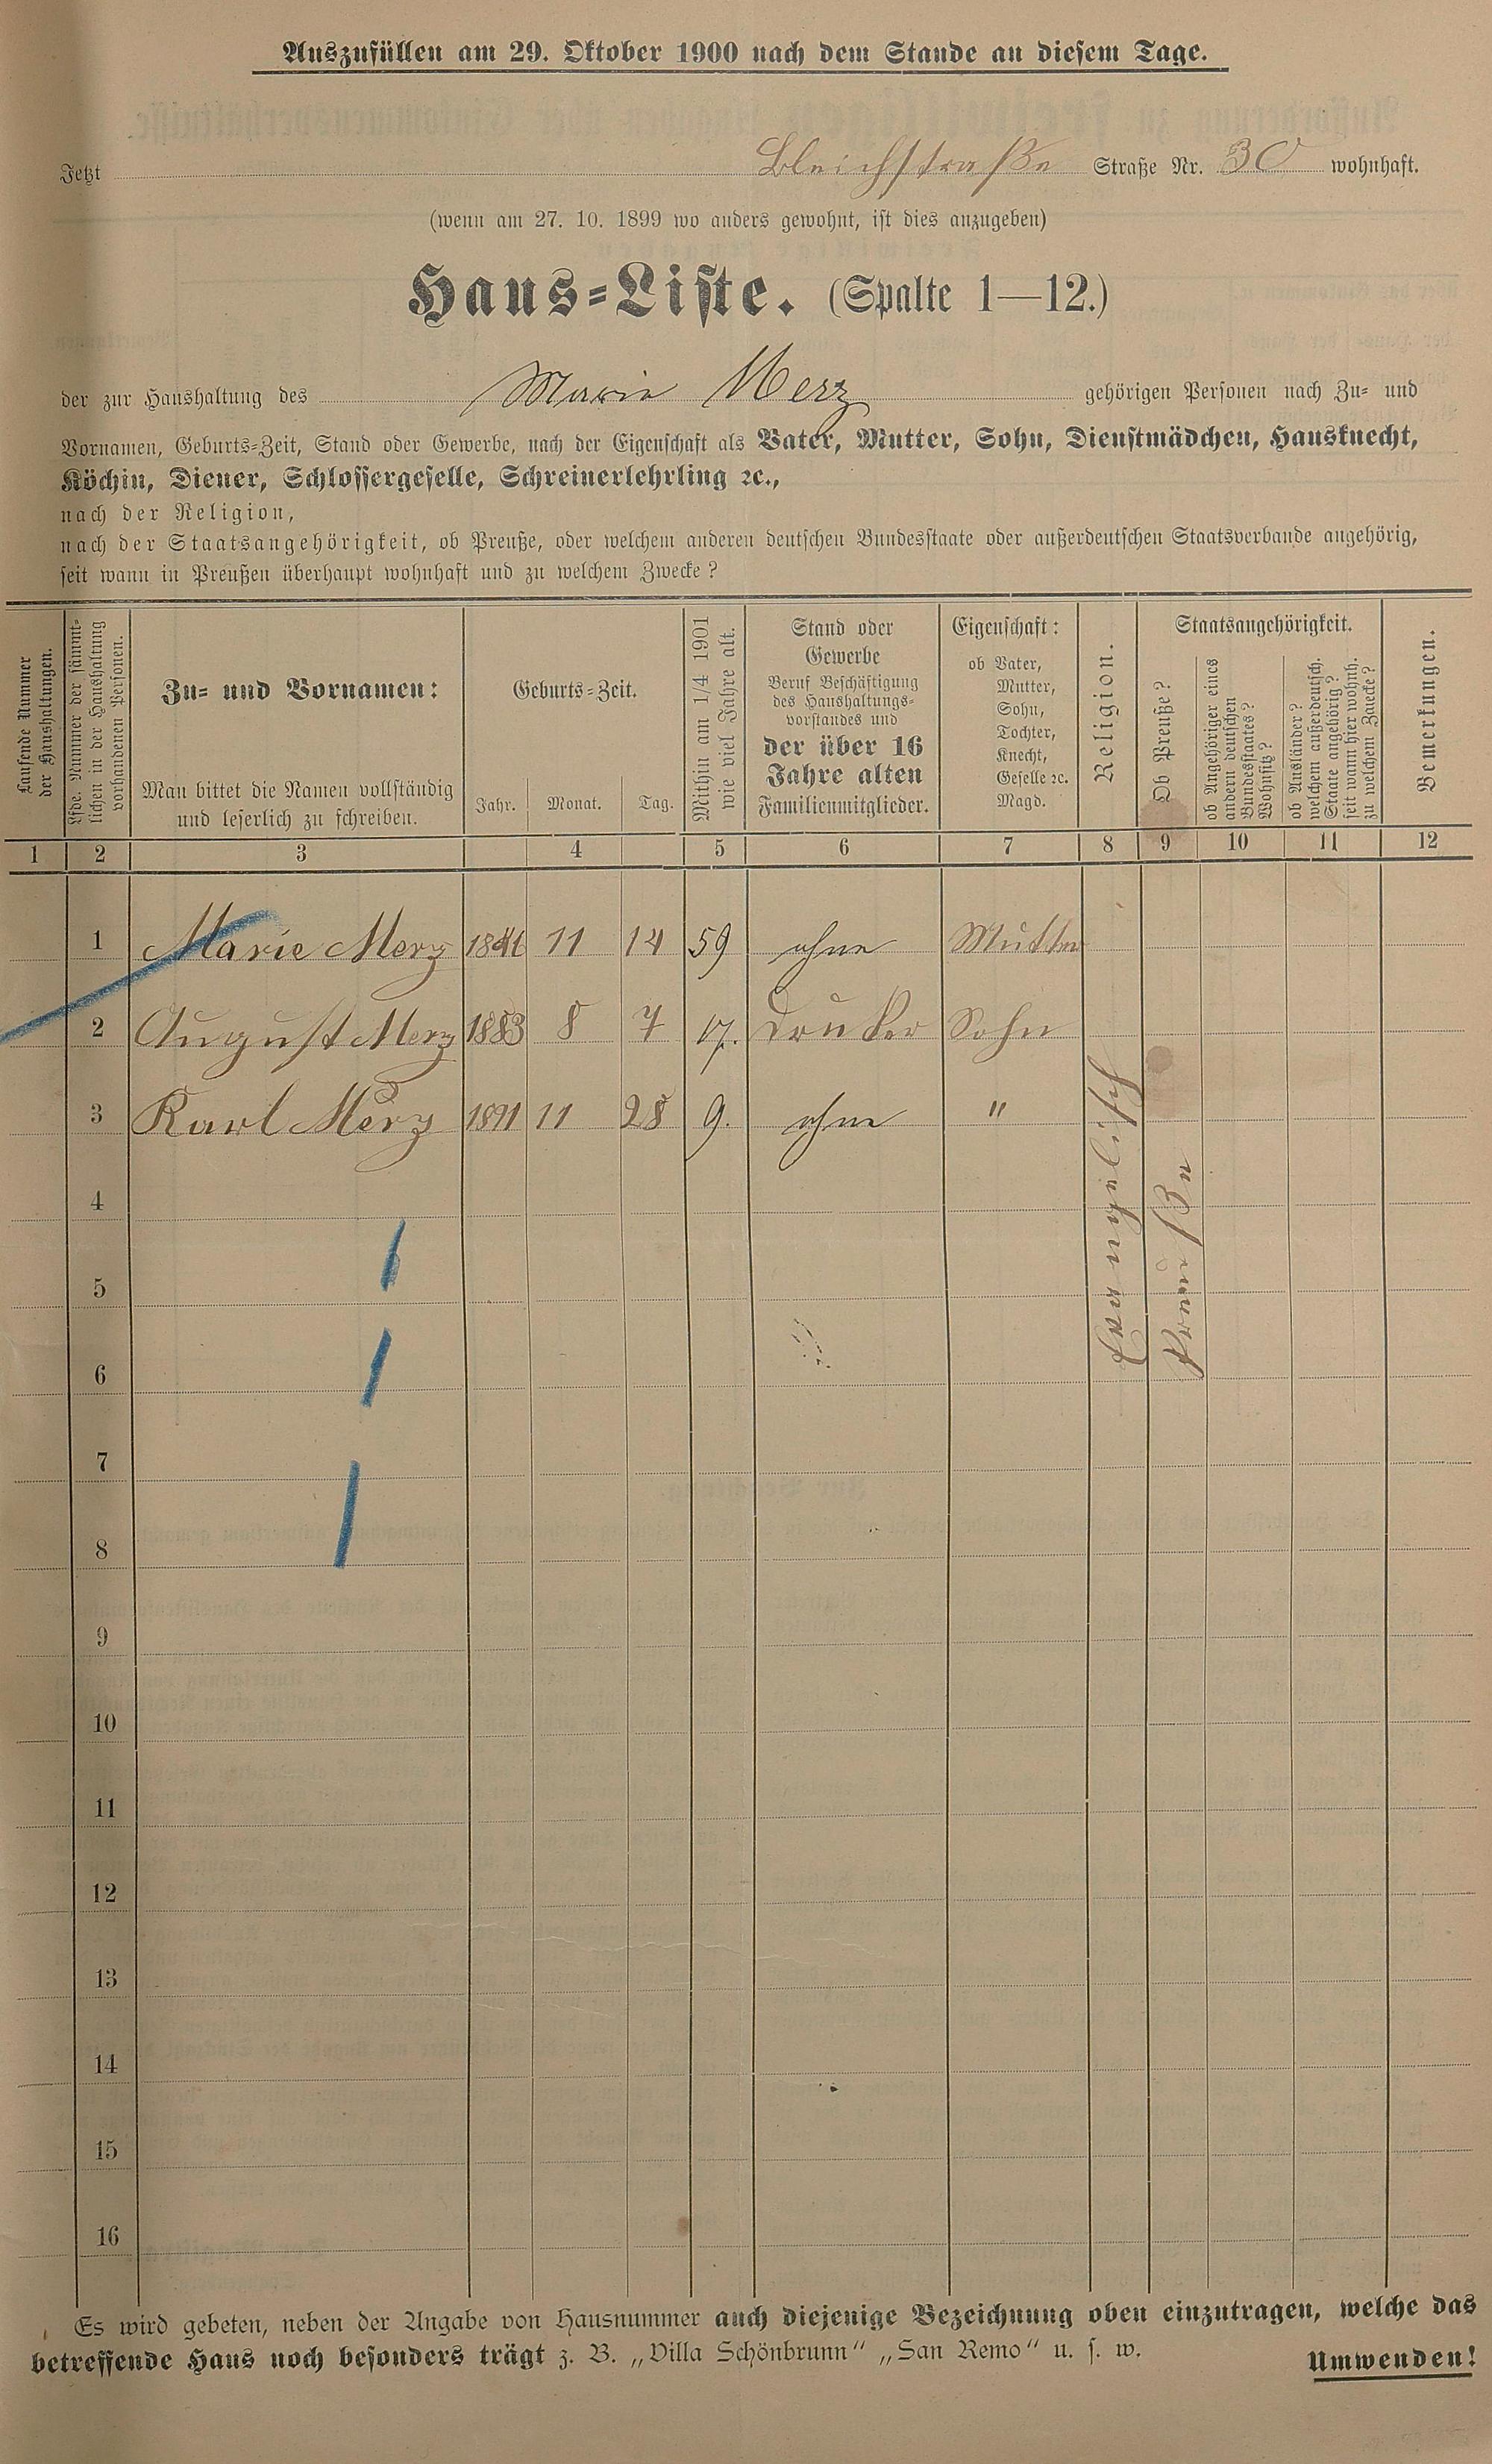 Auszufüllen am 29. Oktober 1900 nach dem Stande an diesem Tage.
Jetzt Bleichstraße Straße Nr. 30 wohnhaft.
(wenn am 27. 10. 1899 wo anders gewohnt, ist dies anzugeben)
Haus-Liste. (Spalte 1—12.)
der zur Haushaltung des Marie Merz gehörigen Personen nach Zu- und
Vornamen, Geburts-Zeit, Stand oder Gewerbe, nach der Eigenschaft als Vater, Mutter, Sohn, Dienstmädchen, Hausknecht,
Köchin, Diener, Schlossergeselle, Schreinerlehrling ꝛc.,
nach der Religion,
nach der Staatsangehörigkeit, ob Preuße, oder welchem anderen deutschen Bundesstaate oder außerdeutschen Staatsverbande angehörig,
seit wann in Preußen überhaupt wohnhaft und zu welchem Zwecke?
Laufende Nummer
der Haushaltungen.
Lfde. Nummer der sämmt-
lichen in der Haushaltung
vorhandenen Personen.
Zu- und Vornamen:
Man bittet die Namen vollständig
und leserlich zu schreiben.
Geburts-Zeit.
Jahr. Monat. Tag.
Mithin am 1/4 1901
wie viel Jahre alt.
Stand oder
Gewerbe
Beruf Beschäftigung
des Haushaltungs-
vorstandes und
der über 16
Jahre alten
Familienmitglieder.
Eigenschaft:
ob Vater,
Mutter,
Sohn,
Tochter,
Knecht,
Geselle ꝛc.
Magd.
Religion.
Staatsangehörigkeit.
Ob Preuße?
ob Angehöriger eines
andern deutschen
Bundesstaates?
Wohnsitz?
ob Ausländer?
welchem außerdeutsch.
Staate angehörig?
seit wann hier wohnh.
zu welchem Zwecke?
Bemerkungen.
1 2 3 4 5 6 7 8 9 10 11 12
1 Marie Merz 1841 11 14 59 ohne Mutter
2 August Merz 1883 8 7 17. Drucker Sohn
3 Karl Merz 1891 11 28 9. ohne "
Evangelisch
Preußen
4
5
6
7
8
9
10
11
12
13
14
15
16
Es wird gebeten, neben der Angabe von Hausnummer auch diejenige Bezeichnung oben einzutragen, welche das
betreffende Haus noch besonders trägt z. B. „Villa Schönbrunn“ „San Remo“ u. s. w.
Umwenden!